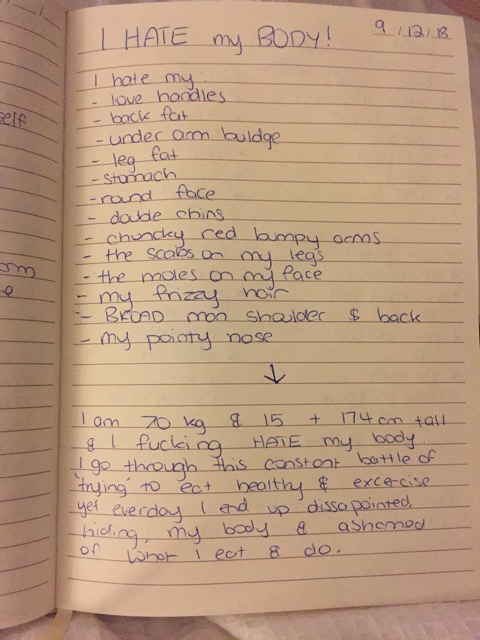 I HATE my BODY!
9/12/18
I hate my:
- love handles
- back fat
- under arm buldge
- leg fat
- stomach
- round face
- double chins
- chuncky red bumpy arms
- the scabs on my legs
- the moles on my face
- my frizzy hair
- BROAD man shoulder & back
- my pointy nose
↓
I am 70 kg & 15 + 174 cm tall
& I fucking HATE my body
I go through this constant battle of
'trying' to eat healthy & excercise
yet everyday I end up dissapointed,
hiding, my body & ashamed
of what I eat & do.